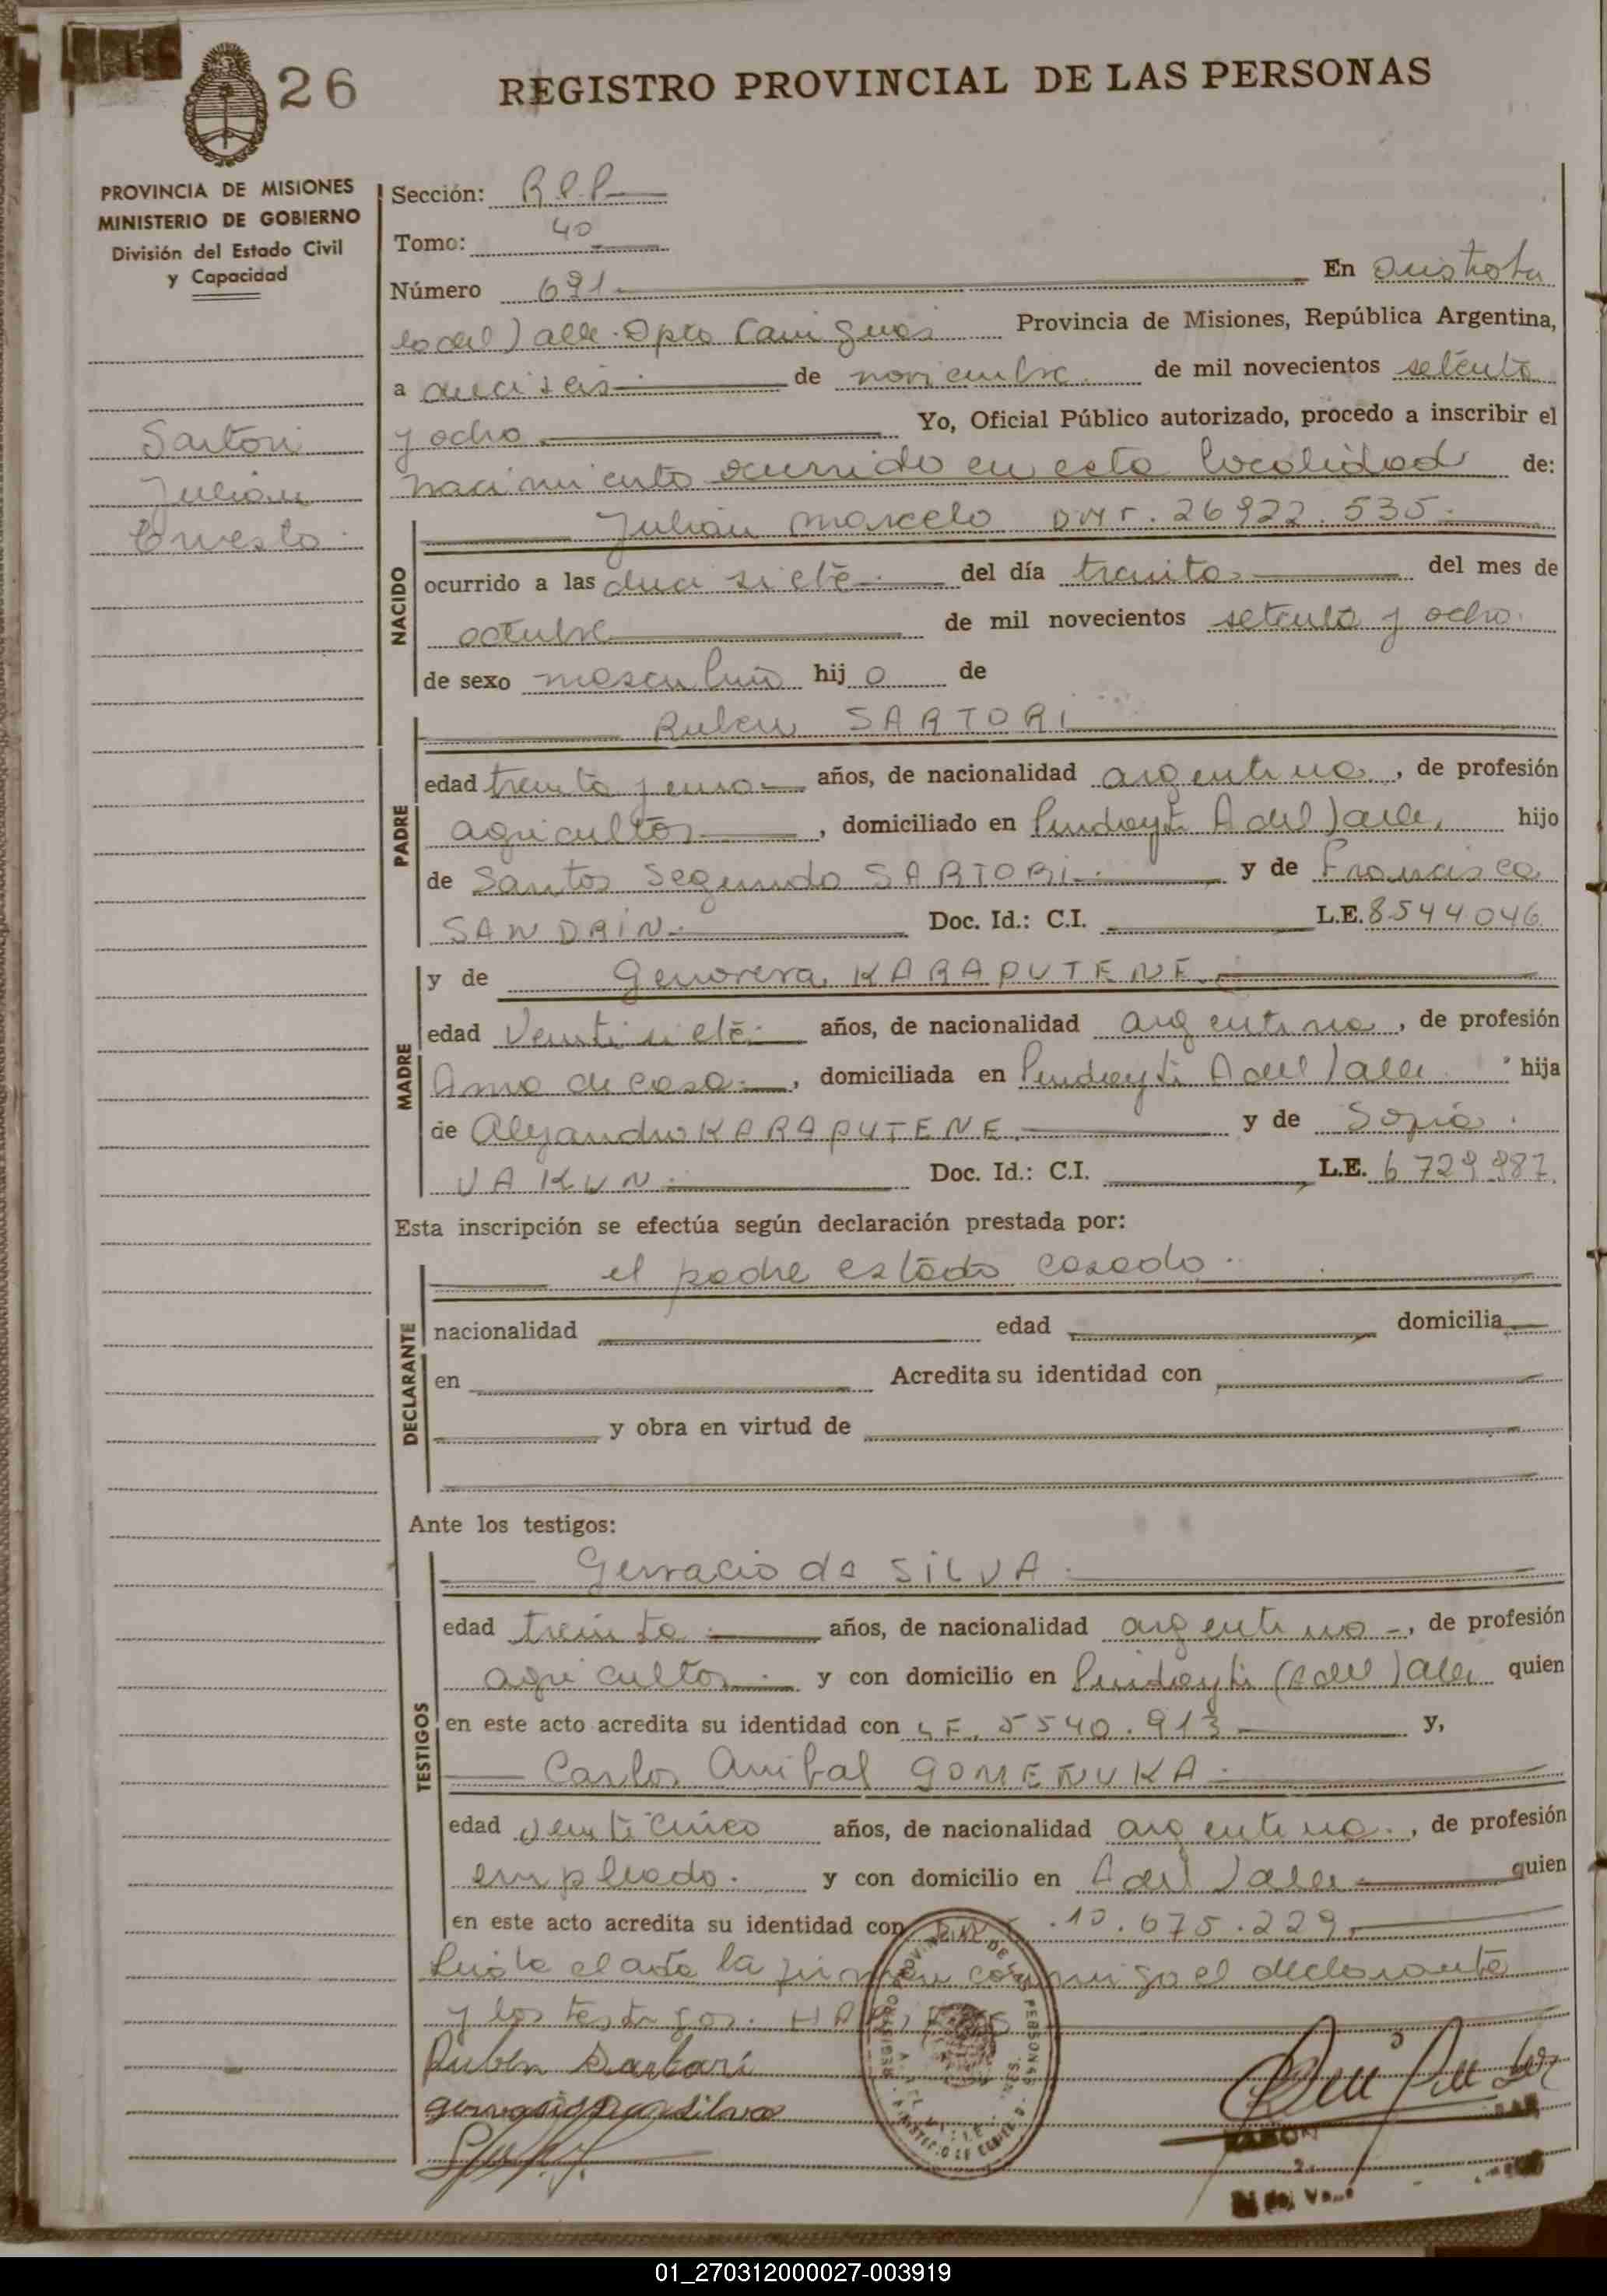 26
REGISTRO PROVINCIAL DE LAS PERSONAS
PROVINCIA DE MISIONES
MINISTERIO DE GOBIERNO
División del Estado Civil
y Capacidad
Sartori
Julian
Ernesto
Sección: R.P.P
Tomo: 40
Número 691 En Aristobu
lo del Valle Dpto Cainguas Provincia de Misiones, República Argentina,
a dieciseis de noviembre de mil novecientos setenta
y ocho Yo, Oficial Público autorizado, procedo a inscribir el
nacimiento ocurrido en esta localidad de:
NACIDO
Julian Marcelo DNI. 26.922.535.
ocurrido a las diecisiete del día treinta del mes de
octubre de mil novecientos setenta y ocho.
de sexo masculino hij o de
PADRE
Ruben SARTORI
edad treinta y uno años, de nacionalidad argentina, de profesión
agricultor, domiciliado en Pindayti A del Valle, hijo
de Santos Segundo SARTORI y de Francisca
SANDRIN. Doc. Id.: C.I. L.E. 8544046
MADRE
y de Genoveva KARAPUTENE
edad Veintisiete años, de nacionalidad argentina, de profesión
Ama de casa, domiciliada en Pindayti A del Valle hija
de Alejandro KARAPUTENE y de Sofia
JAKUN Doc. Id.: C.I. L.E. 6.729.987
Esta inscripción se efectúa según declaración prestada por:
DECLARANTE
el padre estado casado.
nacionalidad edad domicilia
en Acredita su identidad con
y obra en virtud de
Ante los testigos:
TESTIGOS
Gervacio da SILVA
edad treinta años, de nacionalidad argentina, de profesión
agricultor y con domicilio en Pindayti (A del Valle quien
en este acto acredita su identidad con LE. 5540.913 y,
Carlos Anibal GOMEÑUKA
edad veinticinco años, de nacionalidad argentina, de profesión
empleado. y con domicilio en A del Valle quien
en este acto acredita su identidad con DNI .10.675.229
Leida el acta la firman conmigo el declarante
y los testigos.
Ruben Sartori
01_270312000027-003919